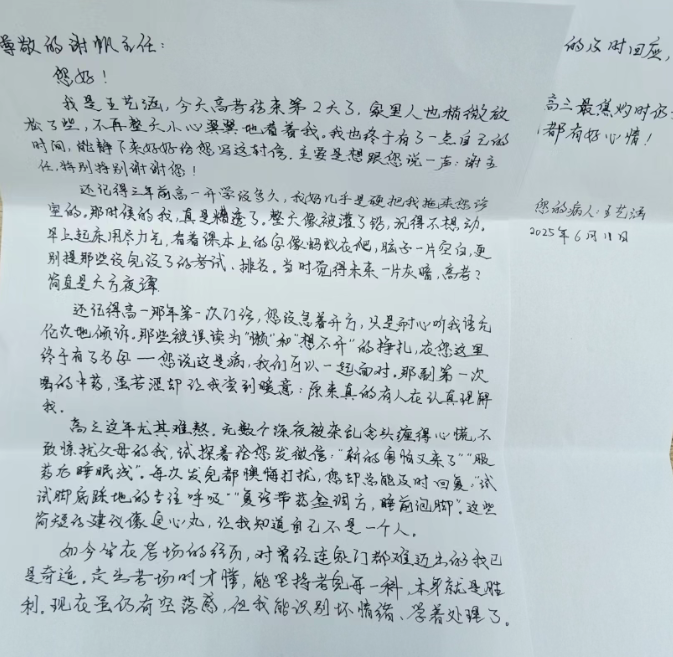 尊敬的谢帆主任：
您好！
我是王艺涵，今天高考结束第2天了，家里人也稍微放
松了些，不再整天小心翼翼地看着我。我也终于有了一点自己的
时间，能静下来好好给您写这封信，主要是想跟您说一声：谢主
任，特别特别谢谢您！
还记得三年前高一开学没多久，我妈几乎是硬把我拖来您诊
室的。那时候的我，真是糟透了。整天像被灌了铅，沉得不想动。
早上起床用尽力气，看着课本上的字像蚂蚁在爬，脑子一片空白，更
别提那些没完没了的考试、排名。当时觉得未来一片灰暗，高考？
简直是天方夜谭
还记得高一那年第一次门诊，您没急着开方，只是耐心听我语无
伦次地倾诉。那些被误读为“懒”和“想不开”的挣扎，在您这里
终于有了名字——您说这是病，我们可以一起面对。那副第一次
喝的中药，温苦涩却让我尝到暖意：原来真的有人在认真理解
我。
高三这年尤其难熬。无数个深夜被杂乱念头缠得心慌，不
敢惊扰父母的我，试探着给您发微信：“新的自恼又来了”“服
药后睡眠浅”。每次发完都懊悔打扰，您却总能及时回复，“试
试脚底踩地的专注呼吸”“复诊带药盒调方，睡前泡脚”。这些
简短的建议像定心丸，让我知道自己不是一个人。
如今坐在考场的经历，对曾经连家门都难迈出的我已
是奇迹。走出考场时才懂，能坚持考完每一科，本身就是胜
利。现在虽仍有空落感，但我能识别坏情绪、学着处理了。
的及时回应，
高三最焦灼时仍
都有好心情！
您的病人：王艺涵
2025年6月11日